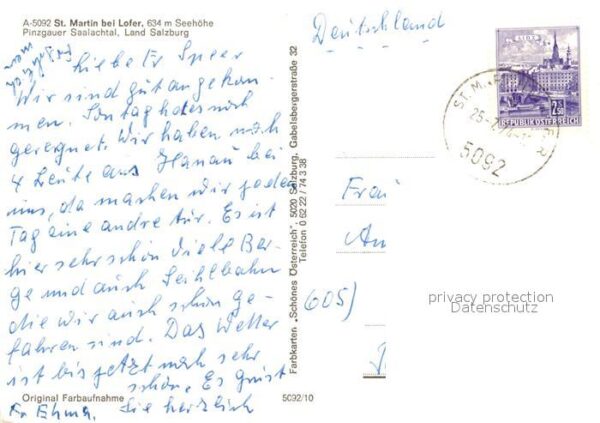 A-5092 St. Martin bei Lofer, 634 m Seehöhe
Pinzgauer Saalachtal, Land Salzburg
Liebe Fr Speer
Wir sind gut angekom
men. Sontag hat es noch
geregnet. Wir haben noch
4 Leute aus Hanau bei
uns, da machen wir jeden
Tag eine andre Tur. Es ist
hier sehr schön viele Ber-
ge und auch Seihlbahn
die wir auch schon ge-
fahren sind. Das Wetter
ist bis jetzt noch sehr
schön. Es grüst
Fr Ehma. Sie herzlich
Original Farbaufnahme
5092/10
Farbkarten „Schönes Österreich" 5020 Salzburg, Gabelsbergerstraße 32
Telefon 0 62 22 / 74 3 38
Deutschland
LINZ
2.50
REPUBLIK ÖSTERREICH
5092
Frau
An
605)
privacy protection
Datenschutz